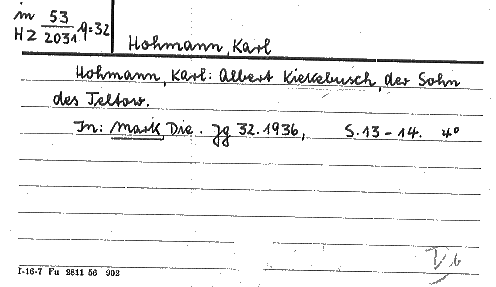 in 53
HZ 2031, q=32
Hohmann, Karl
Hohmann, Karl: Albert Kiekebusch, der Sohn
des Teltow.
In: Mark Die. Jg 32.1936, S.13-14. 4°
I-16-7 Fu 2811 56 902